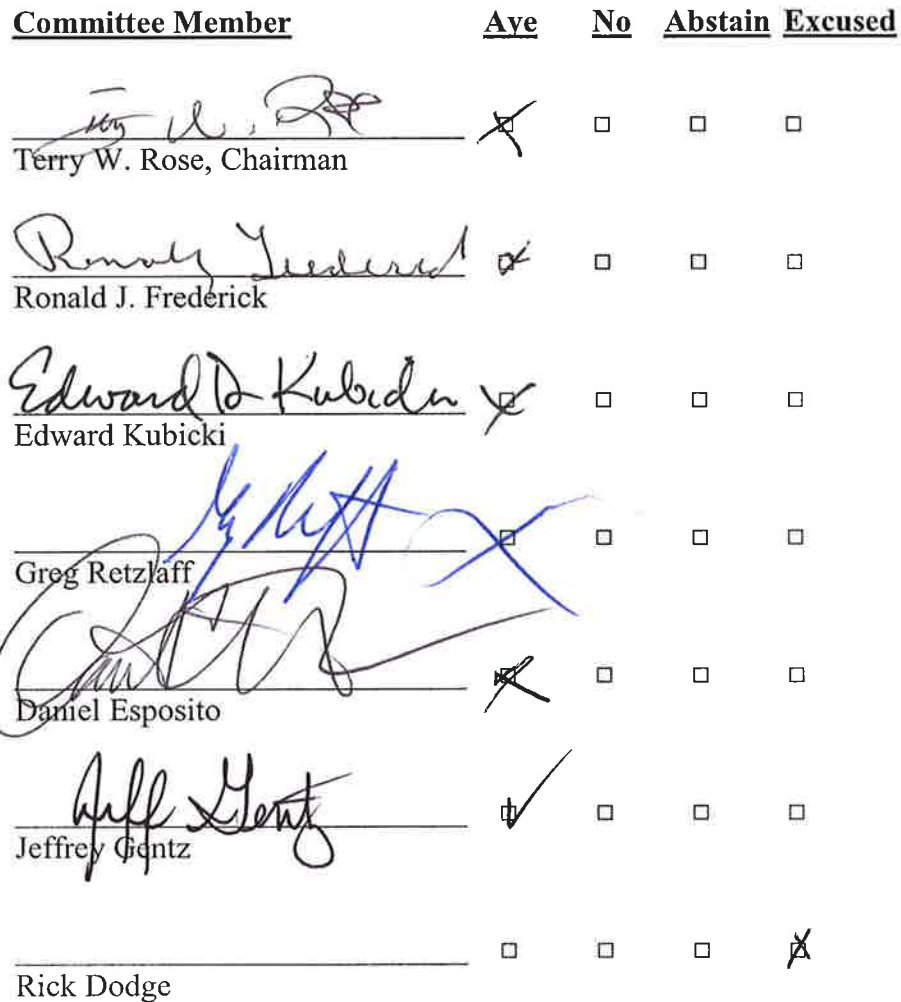 Committee Member Aye No Abstain Excused
Terry W. Rose
Terry W. Rose, Chairman
Ronald Frederick
Ronald J. Frederick
Edward D Kubicki
Edward Kubicki
Greg Retzlaff
Daniel Esposito
Jeff Gentz
Jeffrey Gentz
Rick Dodge